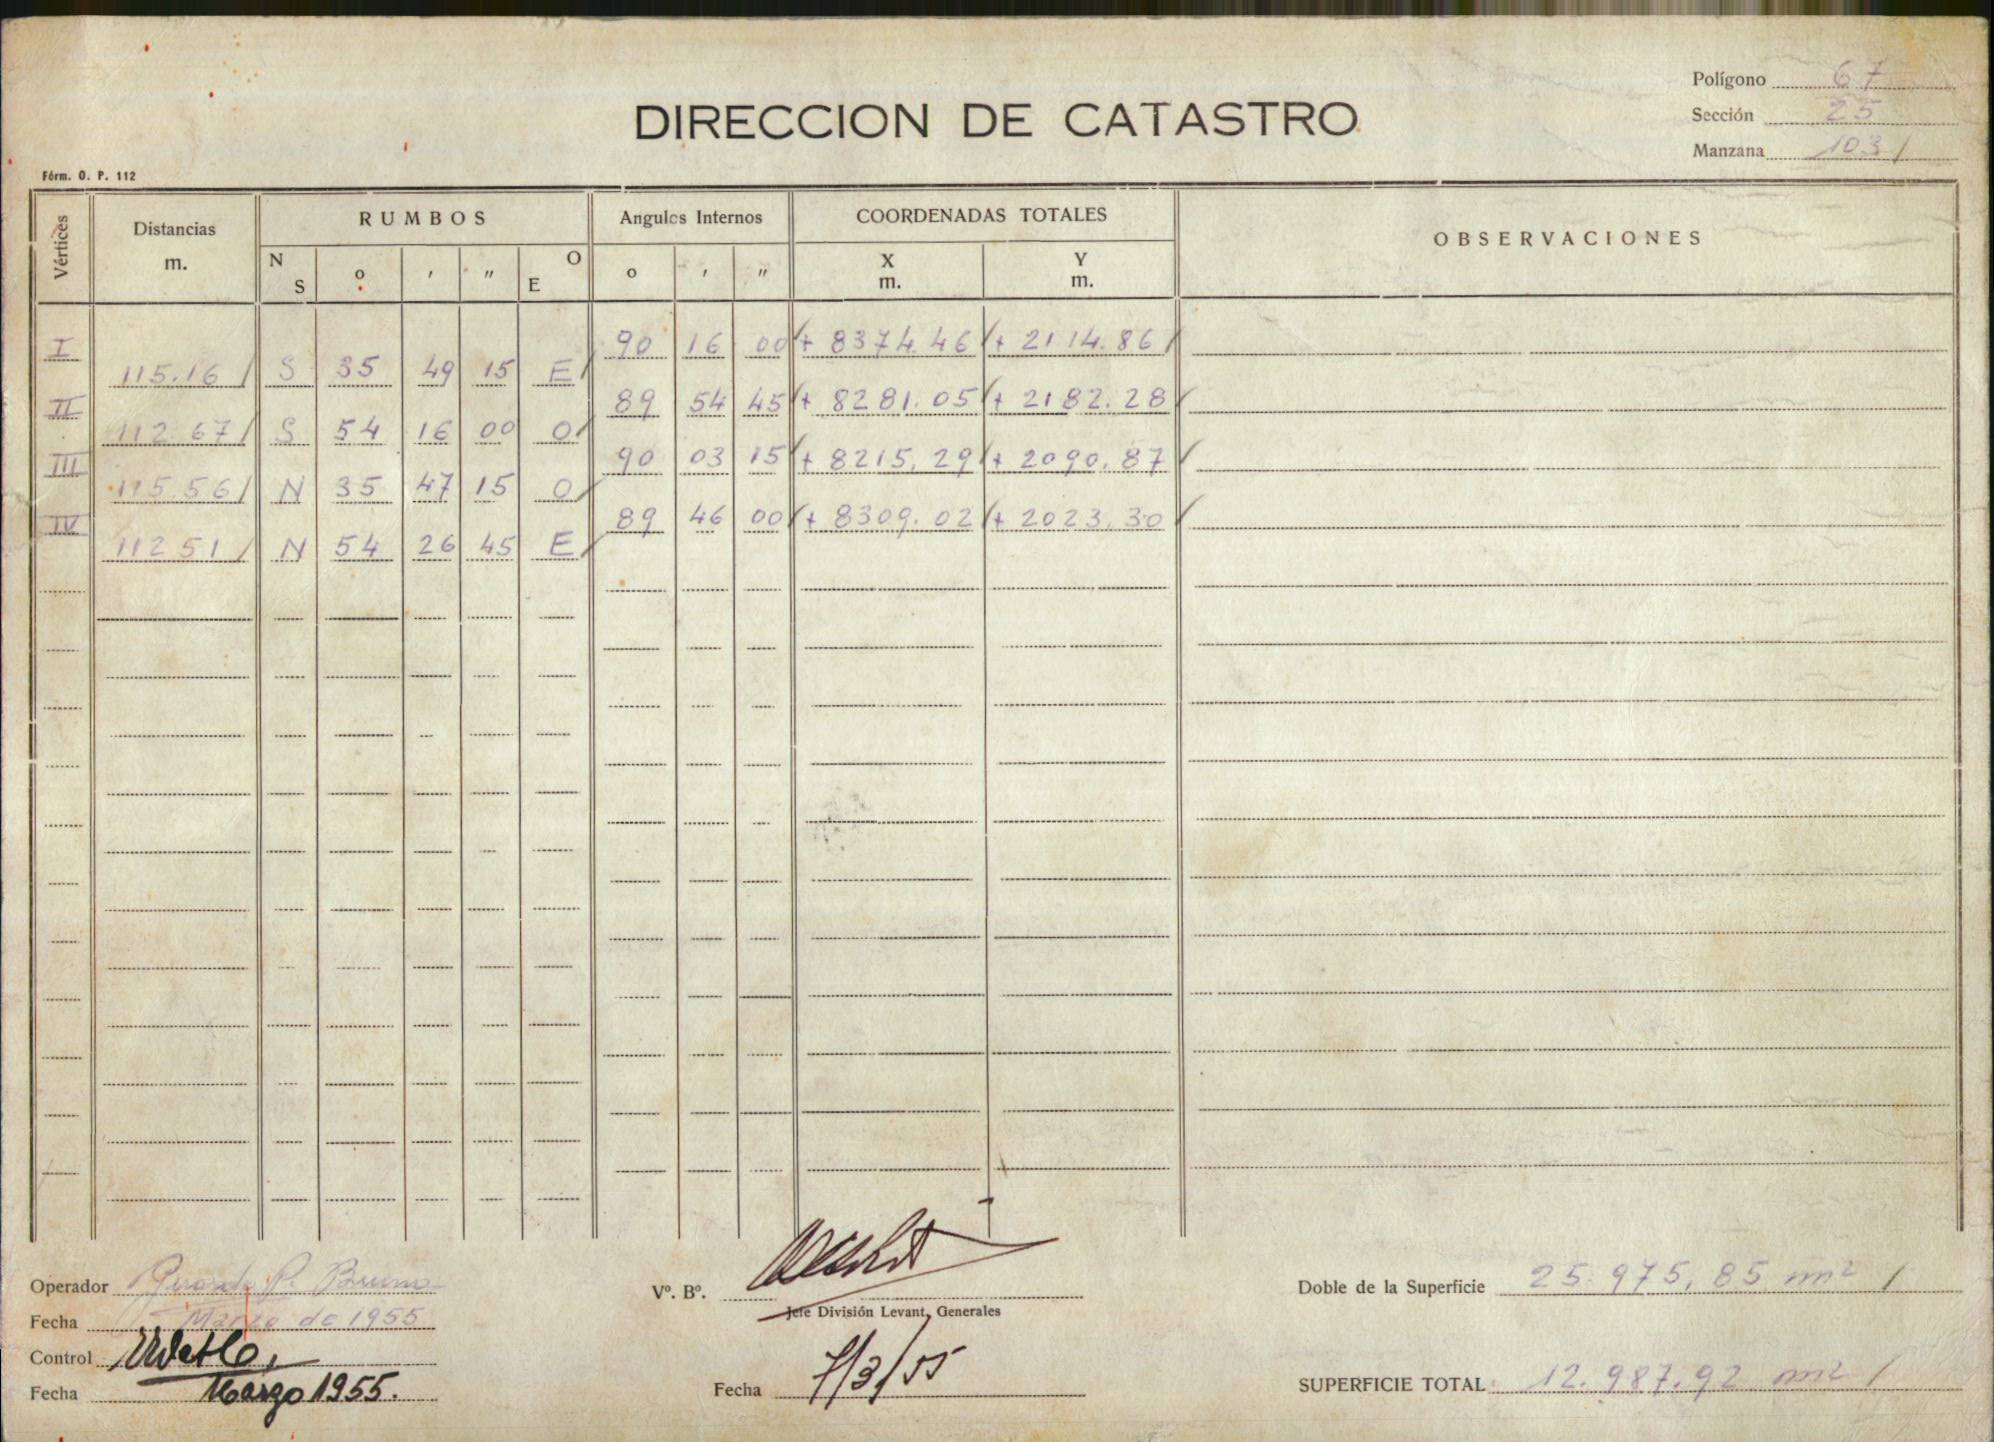 Polígono 67
DIRECCION DE CATASTRO
Sección 25
Manzana 103
Fórm. O. P. 112
Vértices Distancias m. RUMBOS Angulos Internos COORDENADAS TOTALES OBSERVACIONES
N S ° ' " E O ° ' " X m. Y m.
I 90 16 00 + 8374.46 + 2114.86
115.16 S 35 49 15 E
II 89 54 45 + 8281.05 + 2182.28
112.67 S 54 16 00 O
III 90 03 15 + 8215.29 + 2090.87
115.56 N 35 47 15 O
IV 89 46 00 + 8309.02 + 2023.30
112.51 N 54 26 45 E
Operador P. Bruno
Vº. Bº.
Doble de la Superficie 25.975,85 m²
Jefe División Levant. Generales
Fecha Marzo de 1955
Control
Fecha Marzo 1955.
Fecha 7/3/55
SUPERFICIE TOTAL 12.987.92 m²